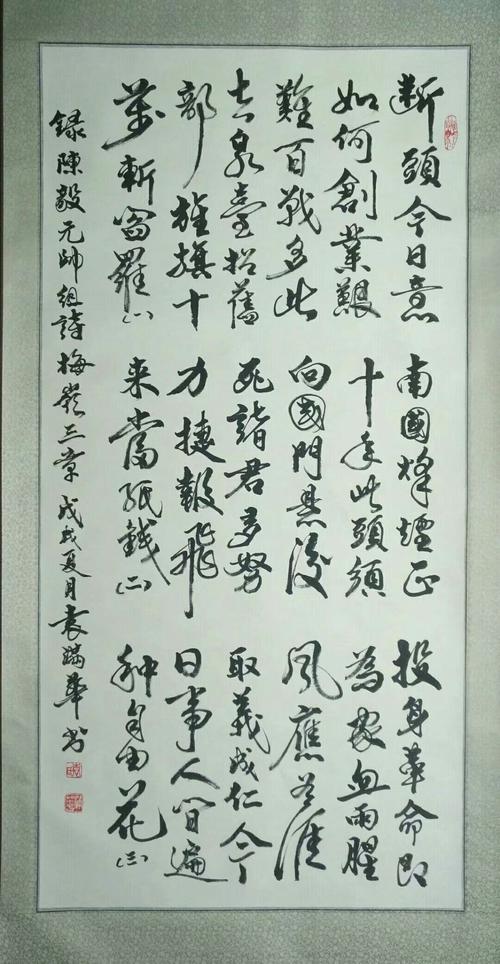 断頭今日意
如何創業艱
難百戰多此
去泉臺招舊
部旌旗十
萬斬閻羅(一)
南國烽煙正
十年此頭須
向國門懸後
死諸君多努
力捷報飛
来當紙錢(二)
投身革命即
為家血雨腥
風應有涯
取義成仁今
日事人間遍
种自由花(三)
録陳毅元帥組詩梅嶺三章 戊戌夏月袁瑞華书